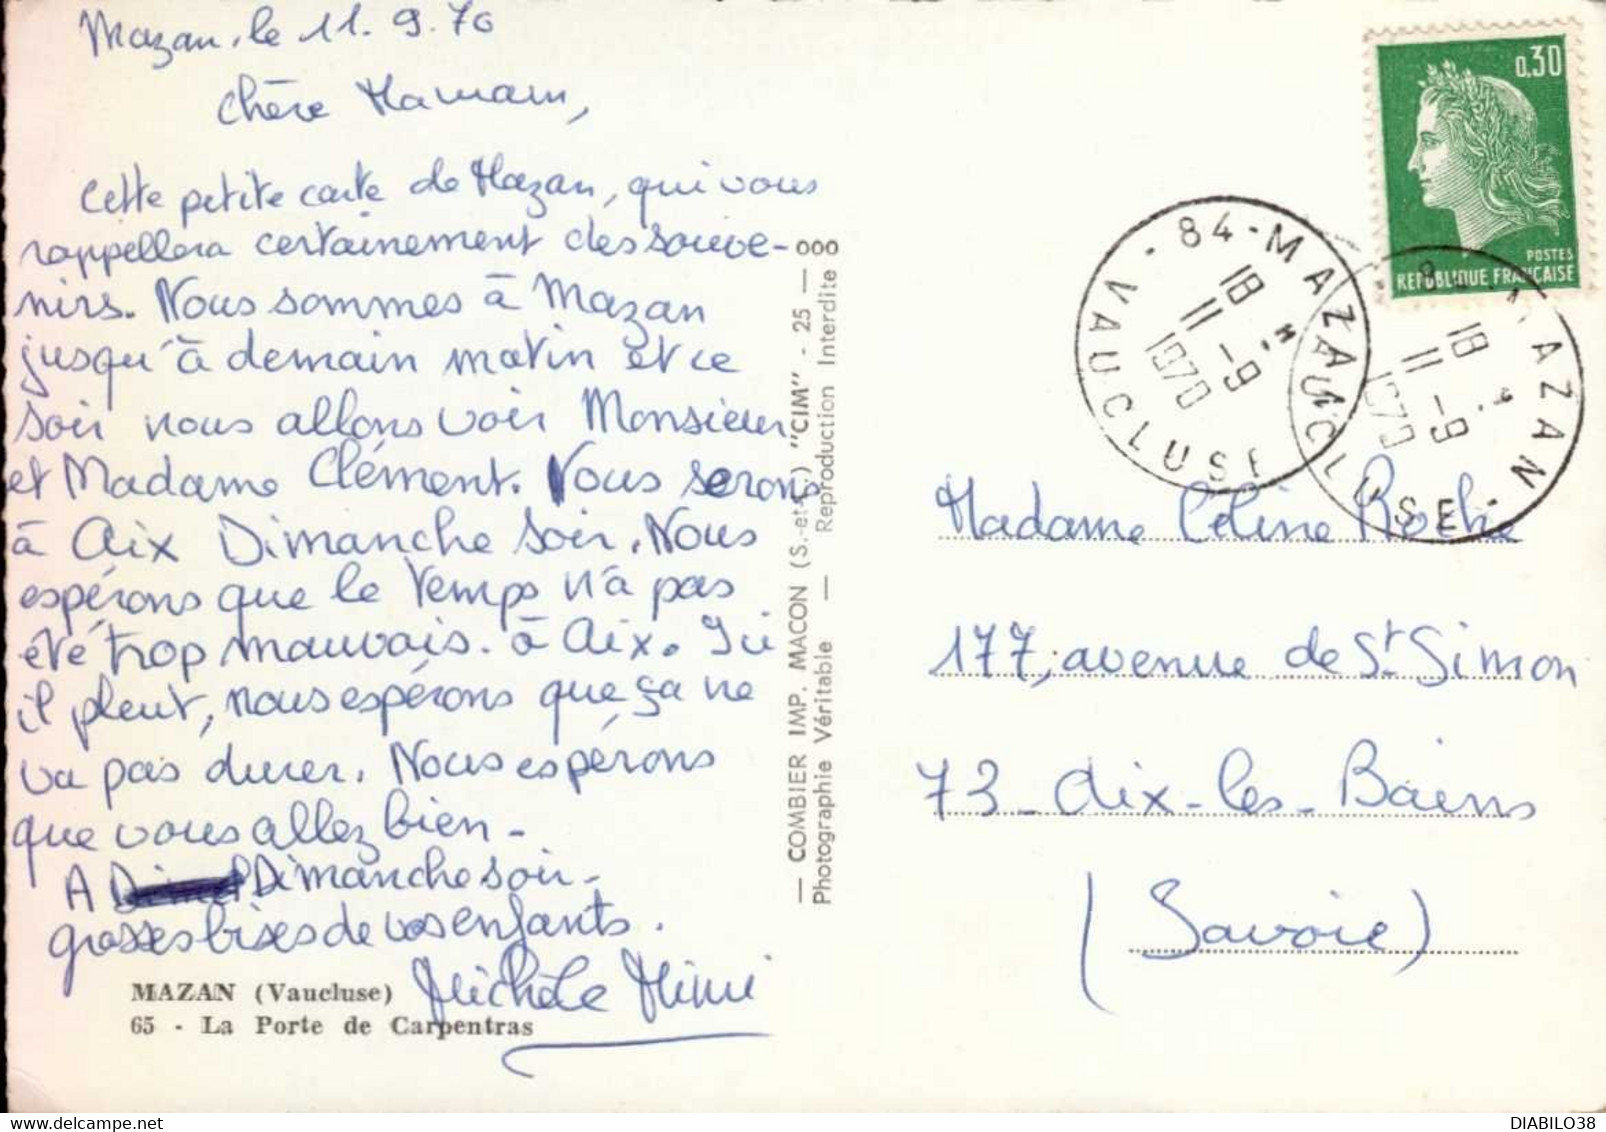 Mazan, le 11.9.70
Chère Maman,
Cette petite carte de Mazan, qui vous
rappellera certainement des souve-
nirs. Nous sommes à Mazan
jusqu'à demain matin et ce
soir nous allons voir Monsieur
et Madame Clément. Nous serons
à Aix Dimanche soir. Nous
espérons que le temps n'a pas
été trop mauvais. à Aix. Ici
il pleut, nous espérons que ça ne
va pas durer. Nous espérons
que vous allez bien -
A Dimanche soir -
grosses bises de vos enfants.
Michèle Mimi
MAZAN (Vaucluse)
65 - La Porte de Carpentras
— COMBIER IMP. MACON (S.-et-L.) "CIM" - 25 — 000
Photographie Véritable — Reproduction Interdite
0,30
POSTES
REPUBLIQUE FRANÇAISE
84 - MAZAN - VAUCLUSE -
18 H.
11 - 9
1970
84 - MAZAN - VAUCLUSE -
18 H.
11 - 9
1970
Madame Céline Roche
177, avenue de St Simon
73 - Aix-les-Bains
(Savoie)
DIABILO38